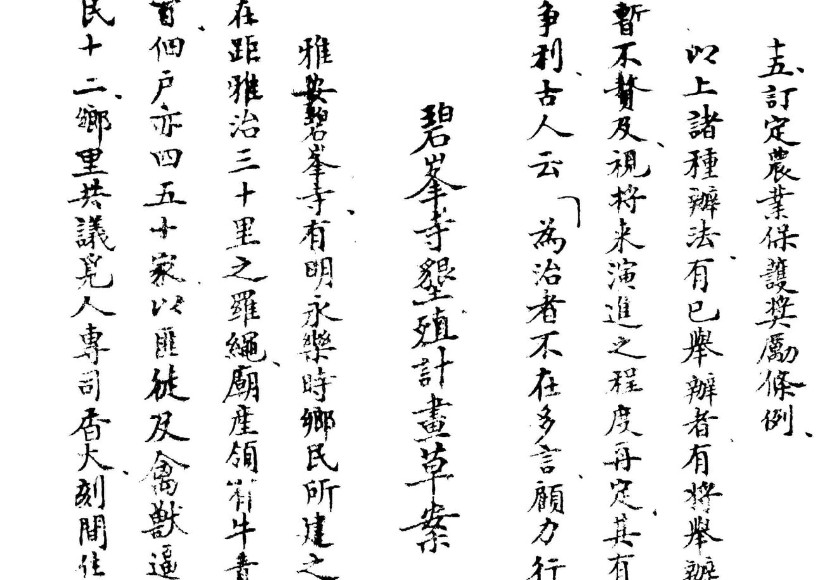 十五、訂定農業保護獎勵條例、
以上諸種辦法、有已舉辦者有將舉辦
暫不贅及、視將来演進之程度再定其有
争利、古人云「為治者不在多言顧力行
碧峯寺墾殖計畫草案
雅安碧峯寺、有明永樂時鄉民所建之
在距雅治三十里之羅繩、廟産領有牛
百佃户亦四五十家以匪徒及禽獸逼
民十二、鄉里共議覓人專司香火、刻間住